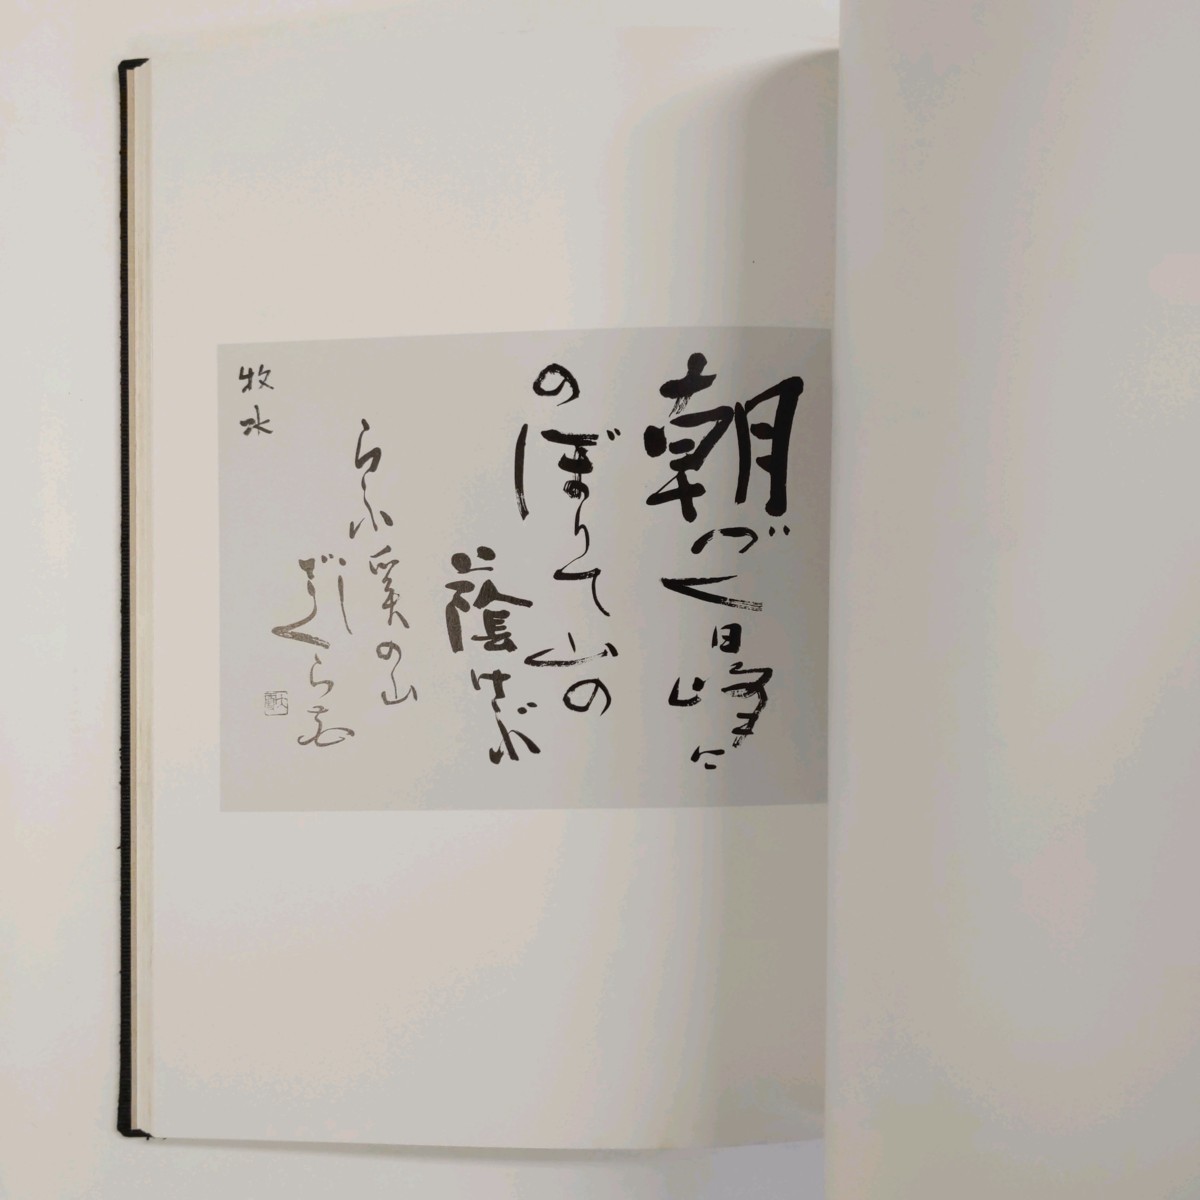 朝づく日峰に
のぼりて山の
蔭けぶ
らふ溪の山
ざくら花
牧水